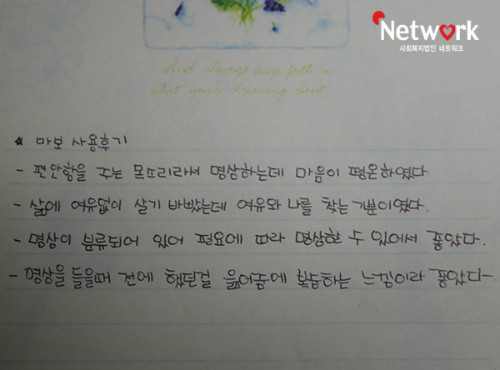 Network
사회복지법인 네트워크
And always keep faith in
what you're dreaming about
* 마보 사용후기
- 편안함을 주는 목소리라서 명상하는데 마음이 평온하였다.
- 삶에 여유없이 살기 바빴는데 여유와 나를 찾는 기분이였다.
- 명상이 분류되어 있어 필요에 따라 명상할 수 있어서 좋았다.
- 명상을 들을때 전에 했던걸 읊어줌에 복습하는 느낌이라 좋았다-